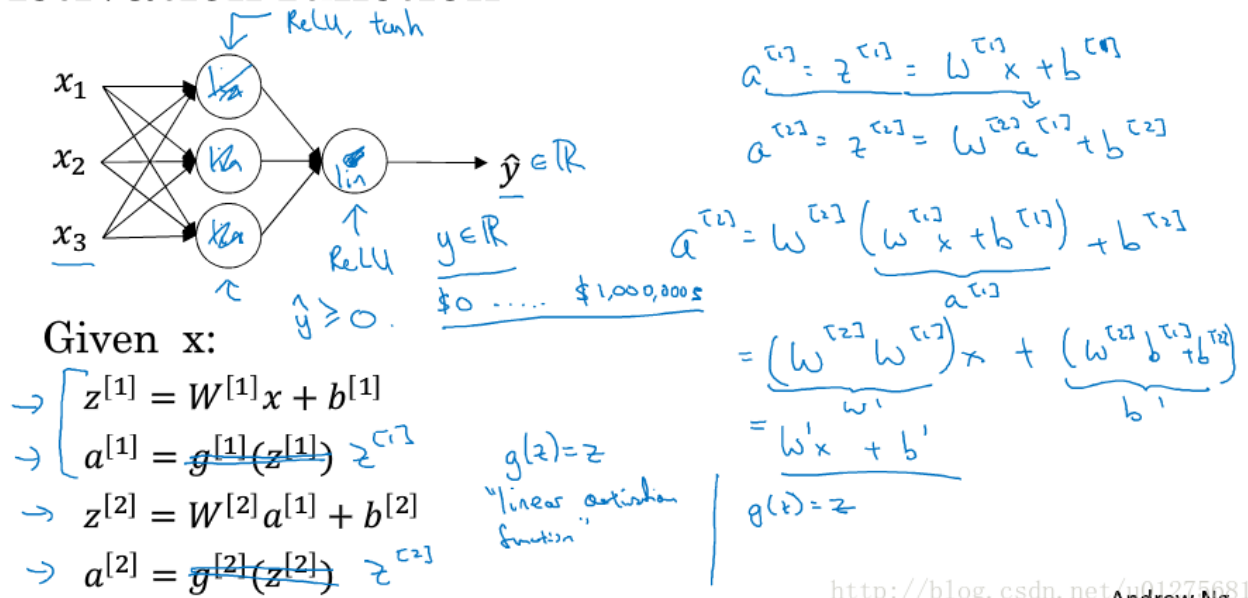 ReLU, tanh
x₁
x₂
x₃
lin
ŷ ∈ ℝ
ReLU
ŷ ≥ 0.
y ∈ ℝ
$0 ..... $1,000,000s
Given x:
→ z^[1] = W^[1]x + b^[1]
→ a^[1] = g^[1](z^[1]) z^[1]
→ z^[2] = W^[2]a^[1] + b^[2]
→ a^[2] = g^[2](z^[2]) z^[2]
g(z) = z
"linear activation
function"
a^[1] = z^[1] = W^[1]x + b^[1]
a^[2] = z^[2] = W^[2]a^[1] + b^[2]
a^[2] = W^[2](W^[1]x + b^[1]) + b^[2]
a^[1]
= (W^[2]W^[1])x + (W^[2]b^[1] + b^[2])
W' b'
= W'x + b'
g(z) = z
http://blog.csdn.net/u01275681
Andrew Ng